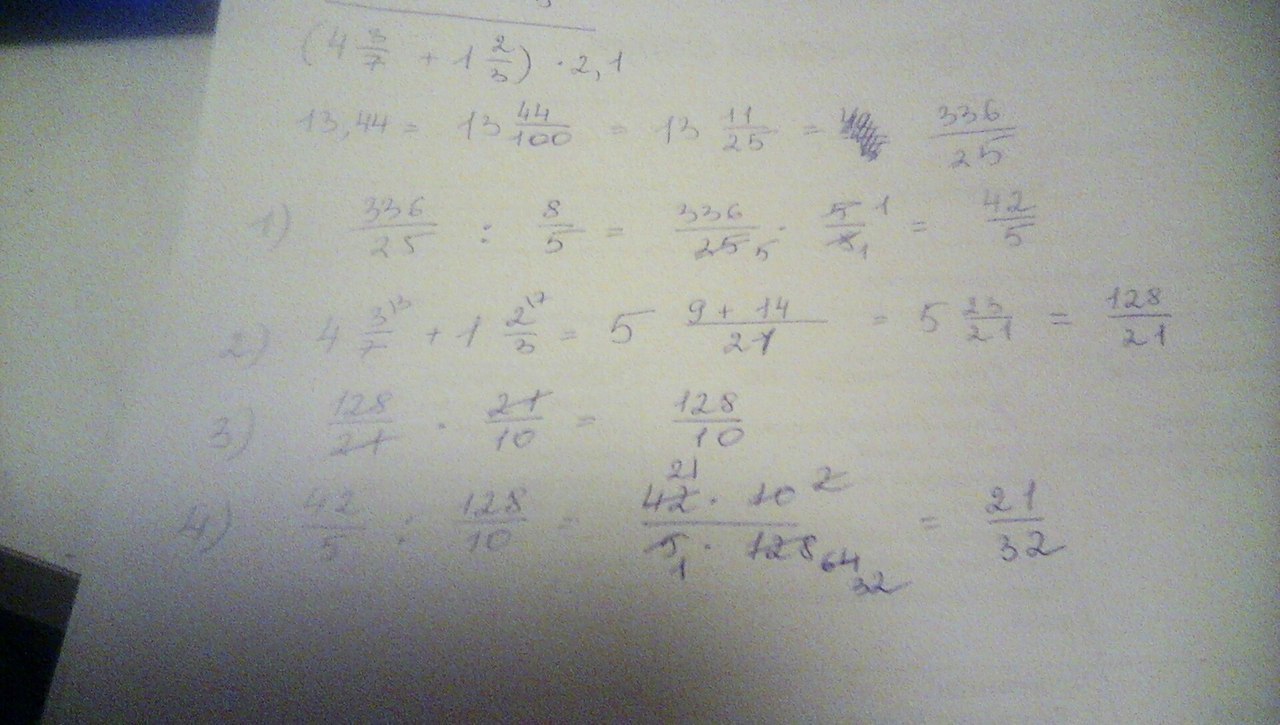 (4 3/7 + 1 2/3) · 2,1
13,44 = 13 44/100 = 13 11/25 = 336/25
1) 336/25 : 8/5 = 336/25 5 · 5/8 1 1 = 42/5
2) 4 3/7 + 1 2/3 = 5 (9 + 14)/21 = 5 23/21 = 128/21
3) 128/21 · 21/10 = 128/10
4) 42/5 : 128/10 = (42 21 · 10 2)/(5 1 · 128 64 32) = 21/32